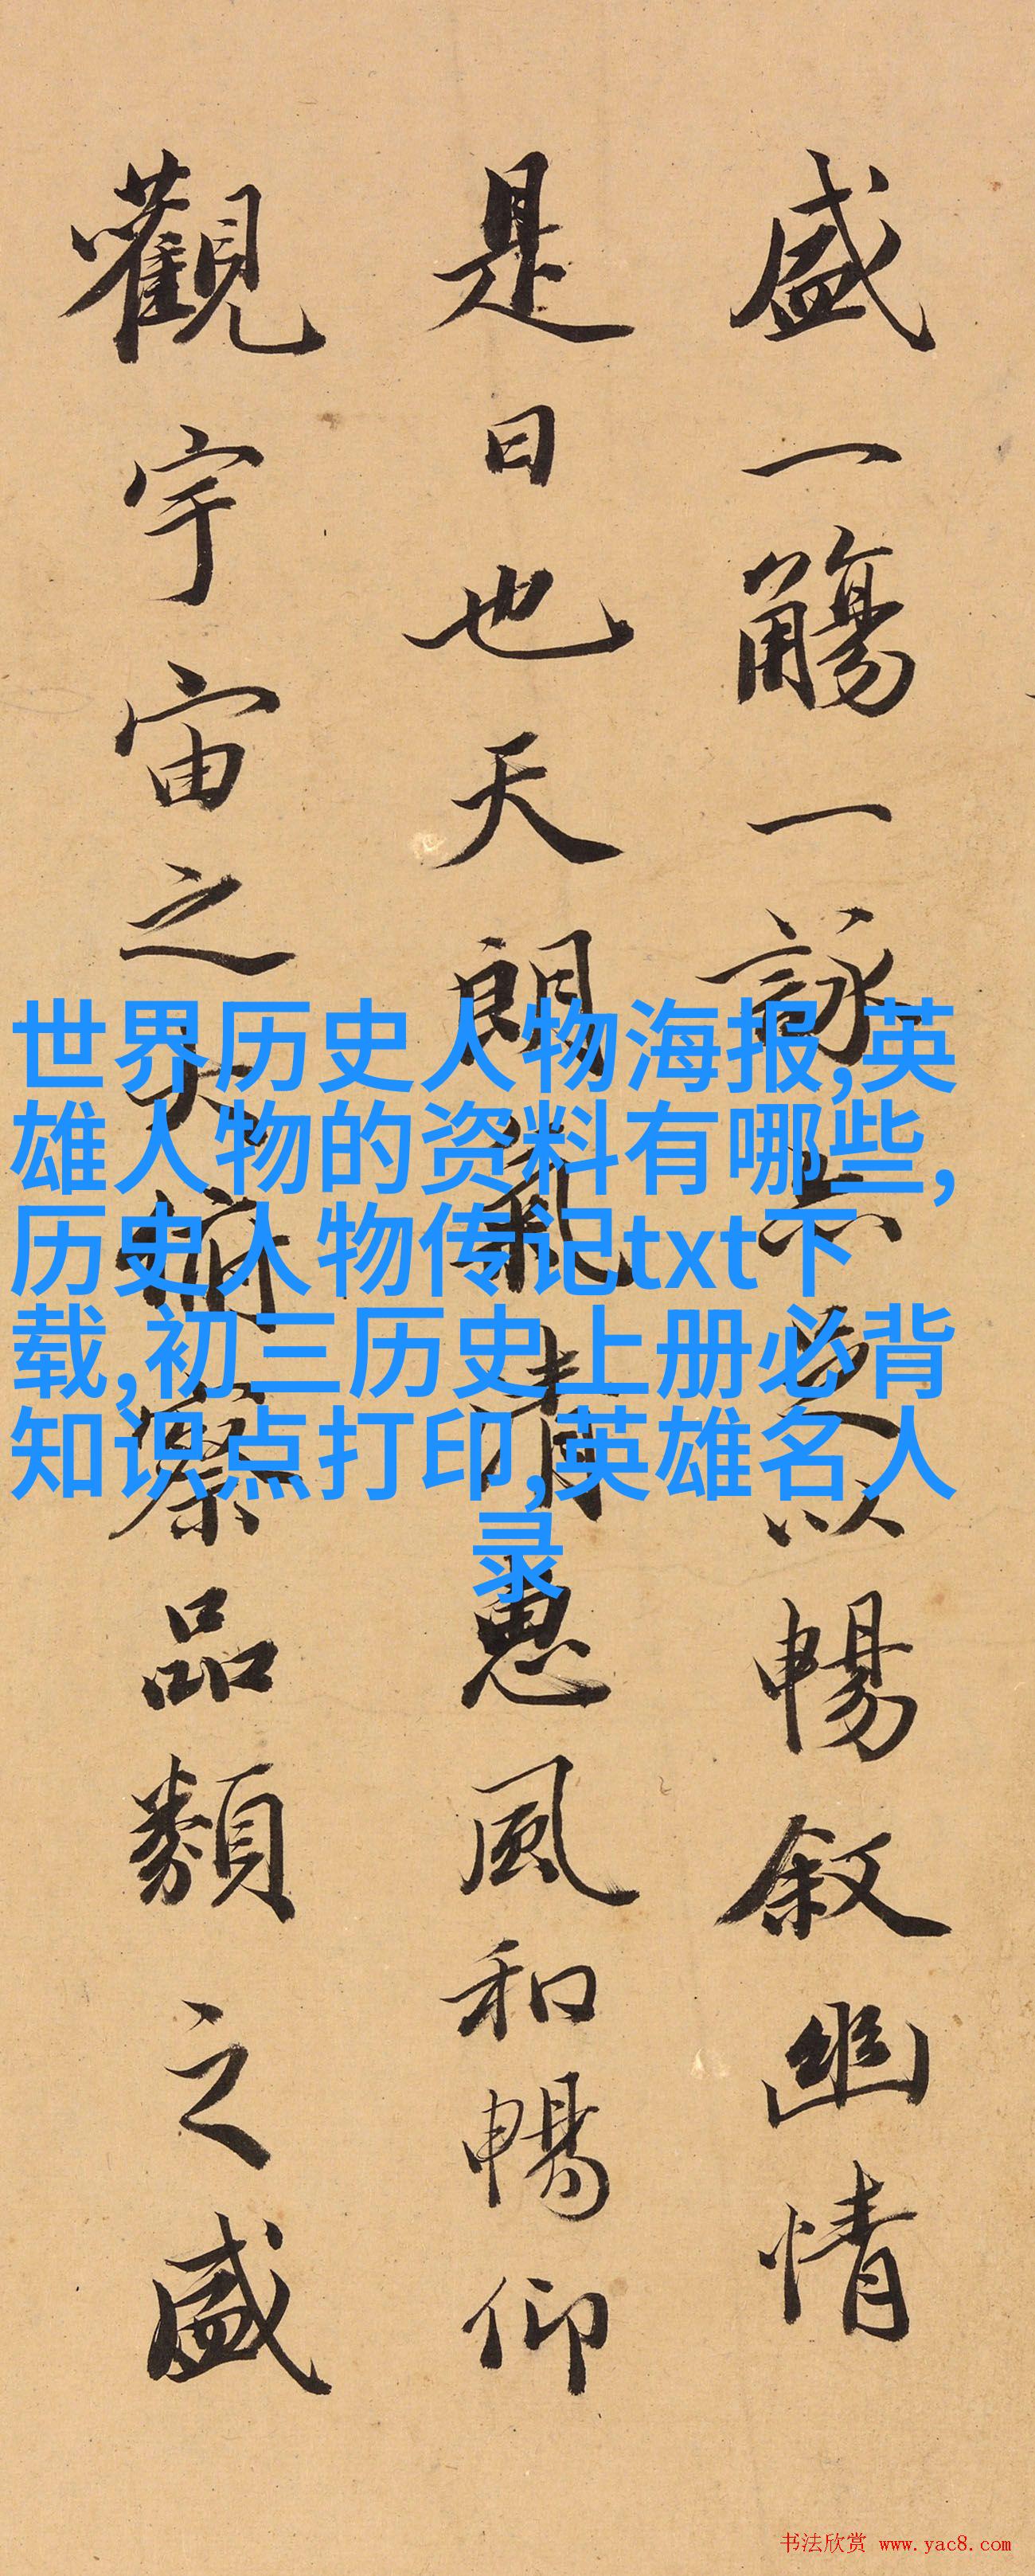 盛一觴一詠亦足以暢叙幽情
是日也天朗氣清惠風和暢仰
觀宇宙之大俯察品類之盛
世界历史人物海报,英
雄人物的资料有哪些,
历史人物传记txt下
载,初三历史上册必背
知识点打印,英雄名人
录
书法欣赏 www.yac8.com